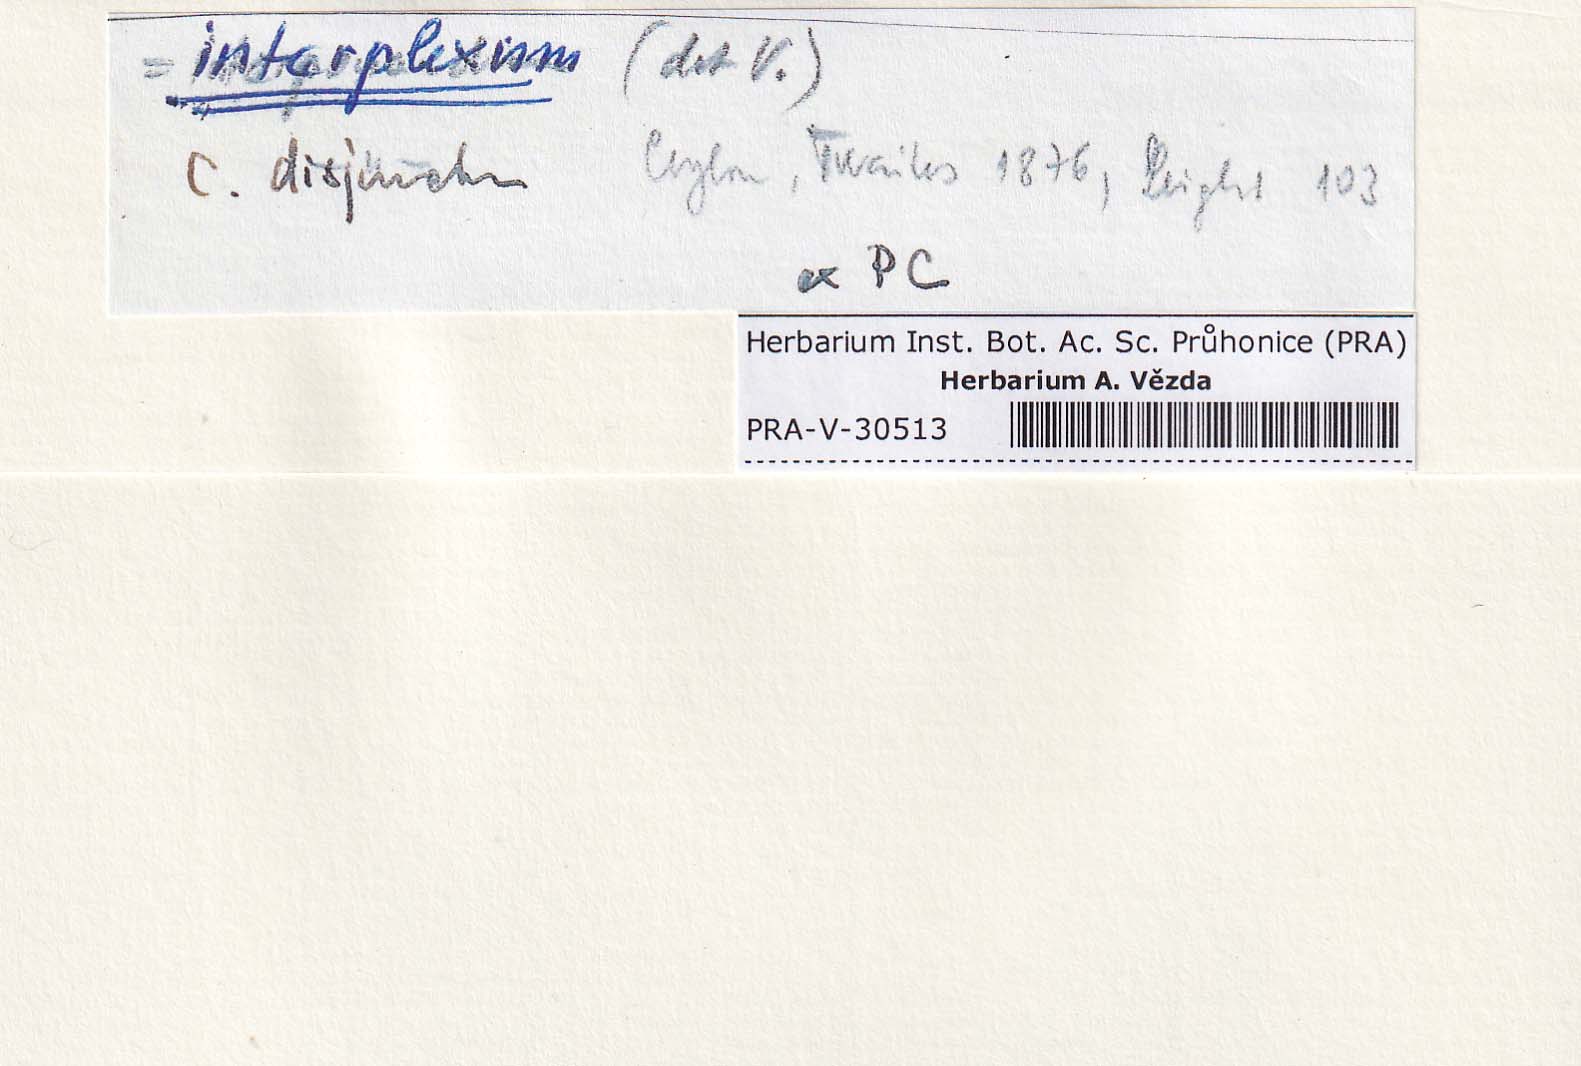 = interplexum (det V.)
C. disjunctum Ceylon, Twaites 1876, Leight 103
ex PC
Herbarium Inst. Bot. Ac. Sc. Průhonice (PRA)
Herbarium A. Vězda
PRA-V-30513